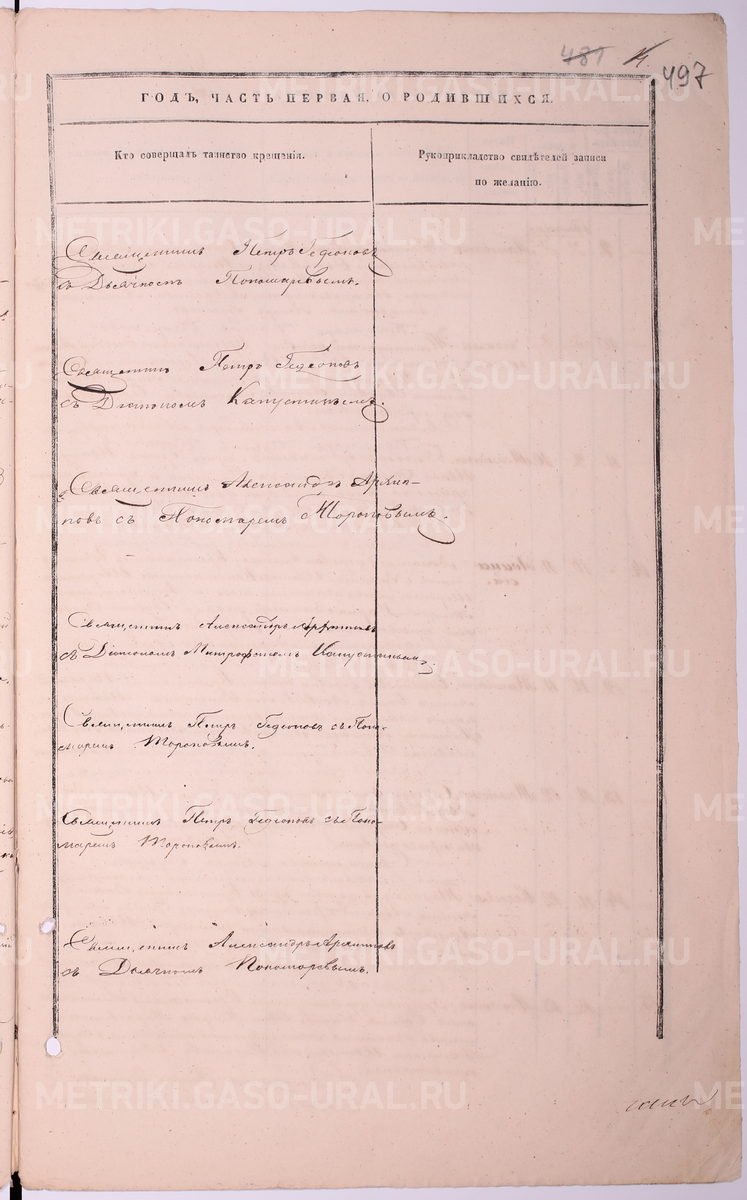 481 4.
497
ГОДЪ, ЧАСТЬ ПЕРВАЯ, О РОДИВШИХСЯ.
Кто совершалъ таинство крещенія.
Рукоприкладство свидѣтелей записи
по желанію.
Священникъ Петръ Гедеоновъ
съ Дьячкомъ Пономаревымъ.
Священникъ Петръ Гедеоновъ
съ Діакономъ Капустинымъ.
Священникъ Александръ Архип-
повъ съ Пономаремъ Тороповымъ.
Священникъ Александръ Архиповъ
съ Діакономъ Митрофаномъ Капустинымъ.
Священникъ Петръ Гедеоновъ съ Поно-
маремъ Тороповымъ.
Священникъ Петръ Гедеоновъ съ Поно-
маремъ Тороповымъ.
Священникъ Александръ Архиповъ
съ Дьячкомъ Пономаревымъ.
METRIKI.GASO-URAL.RU